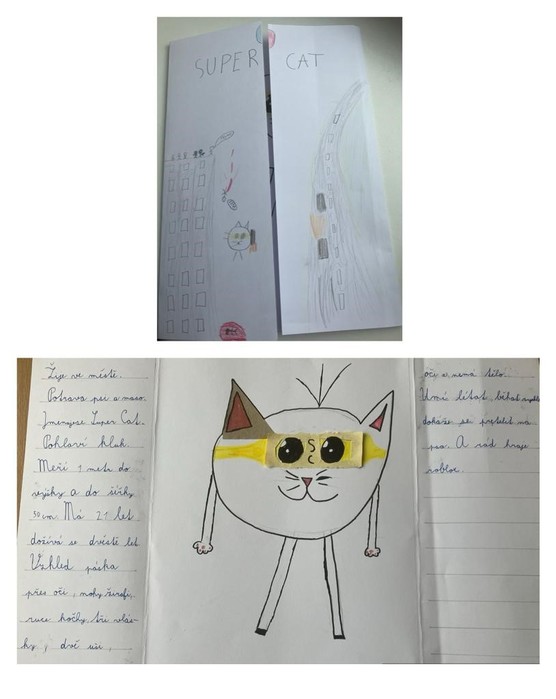 SUPER CAT
Žije ve městě.
Potrava psi a maso.
Jmenuje se Super Cat.
Pohlaví kluk.
Měří 1 metr do
výšky a do šířky
50 cm. Má 21 let
dožívá se dvěstě let
Vzhled páska
přes oči, nohy žirafí,
ruce kočky, tři vlás-
ky, dvě uši,
SC
oči a nemá tělo.
Umí lítat, běhat rychle
dokáže se přetělit na
psa. A rád hraje
roblox.